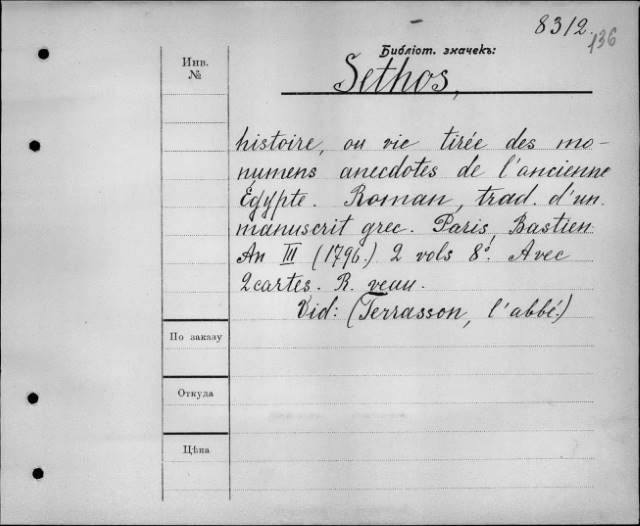 8312.
136
Библіот. значекъ:
Инв.
№
Sethos,
histoire, ou vie tirée des mo-
numens anecdotes de l'ancienne
Egypte. Roman, trad. d'un
manuscrit grec. Paris, Bastien
An III (1796.) 2 vols 8º. Avec
2 cartes. R. veau.
Vid: (Terrasson, l'abbé.)
По заказу
Откуда
Цѣна